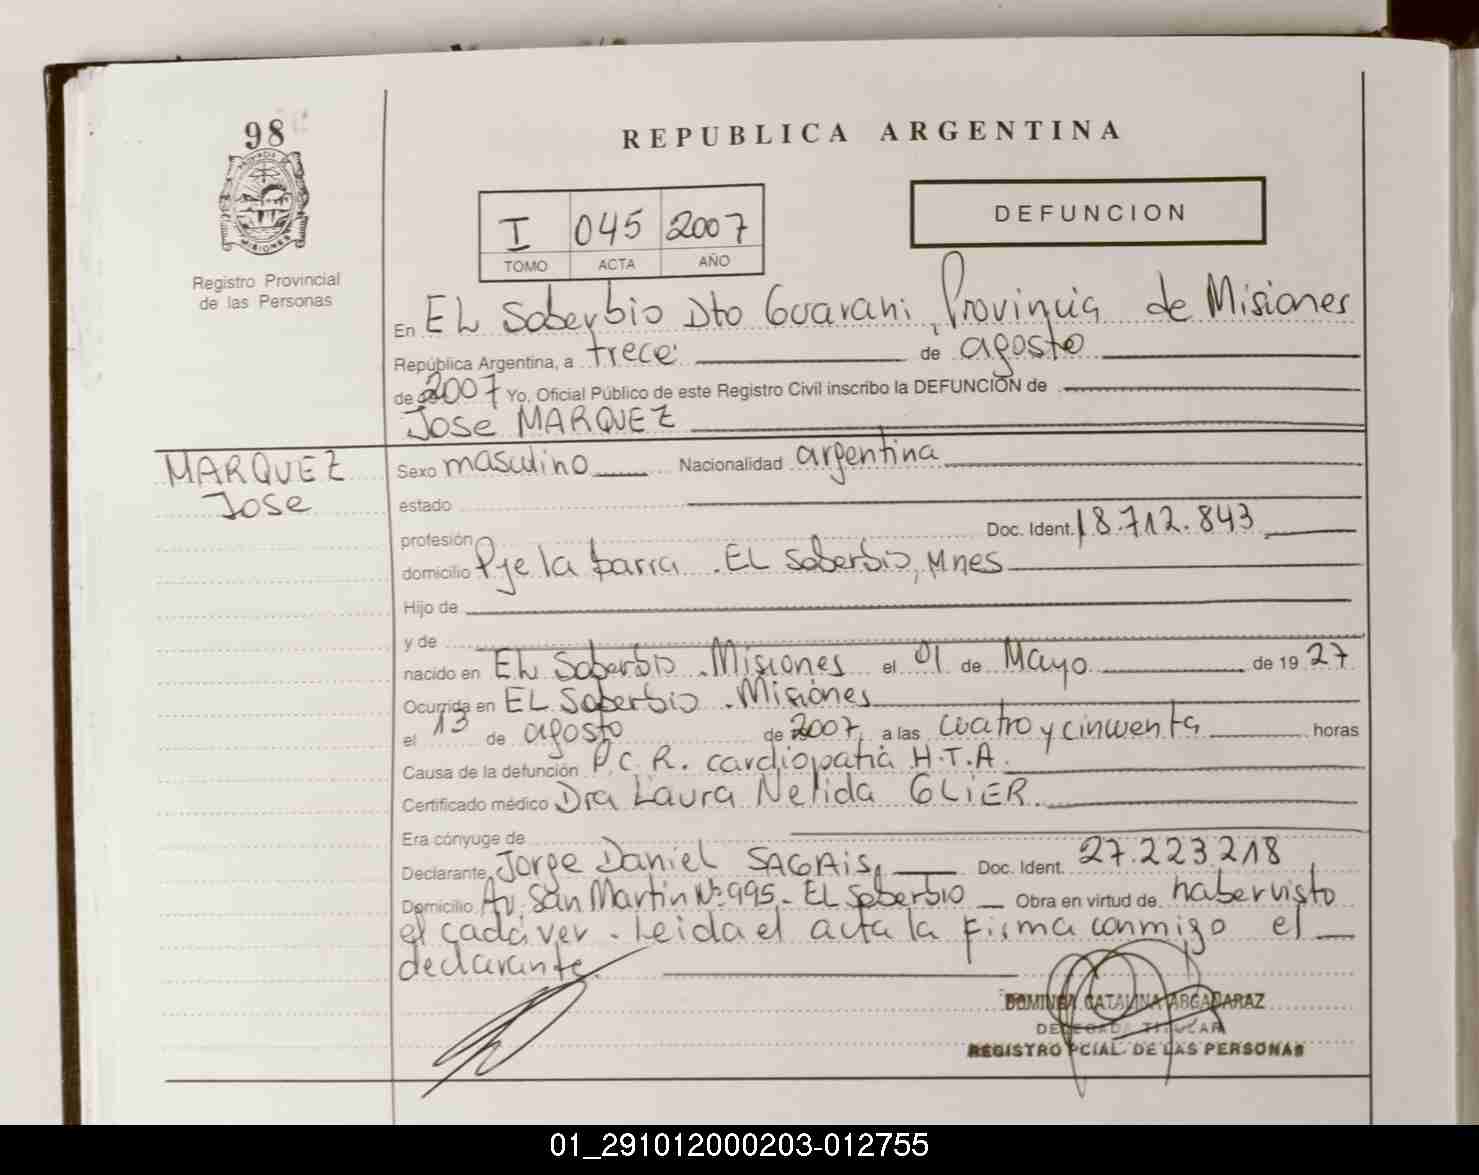 98
PROVINCIA DE
MISIONES
Registro Provincial
de las Personas
REPUBLICA ARGENTINA
I 045 2007
TOMO ACTA AÑO
DEFUNCION
En EL Soberbio Dto Guarani, Provincia de Misiones
República Argentina, a trece de agosto
de 2007 Yo, Oficial Público de este Registro Civil inscribo la DEFUNCION de
Jose MARQUEZ
MARQUEZ
Jose
Sexo masculino Nacionalidad argentina
estado
profesión Doc. Ident. 18.712.843
domicilio Pje la barra . EL Soberbio, Mnes
Hijo de
y de
nacido en EL Soberbio . Misiones el 01 de Mayo de 19 27
Ocurrida en EL Soberbio . Misiones
el 13 de agosto de 2007 a las cuatro y cincuenta horas
Causa de la defunción P.C.R. cardiopatia H.T.A.
Certificado médico Dra Laura Nelida GLIER.
Era cónyuge de
Declarante Jorge Daniel SAGAIS, Doc. Ident. 27.223.218
Domicilio Av. San Martin Nº 995 - EL Soberbio Obra en virtud de haber visto
el cadáver . Leida el acta la firma conmigo el
declarante.
DOMINGA CATALINA ARGAÑARAZ
DELEGADA TITULAR
REGISTRO PCIAL. DE LAS PERSONAS
01_291012000203-012755